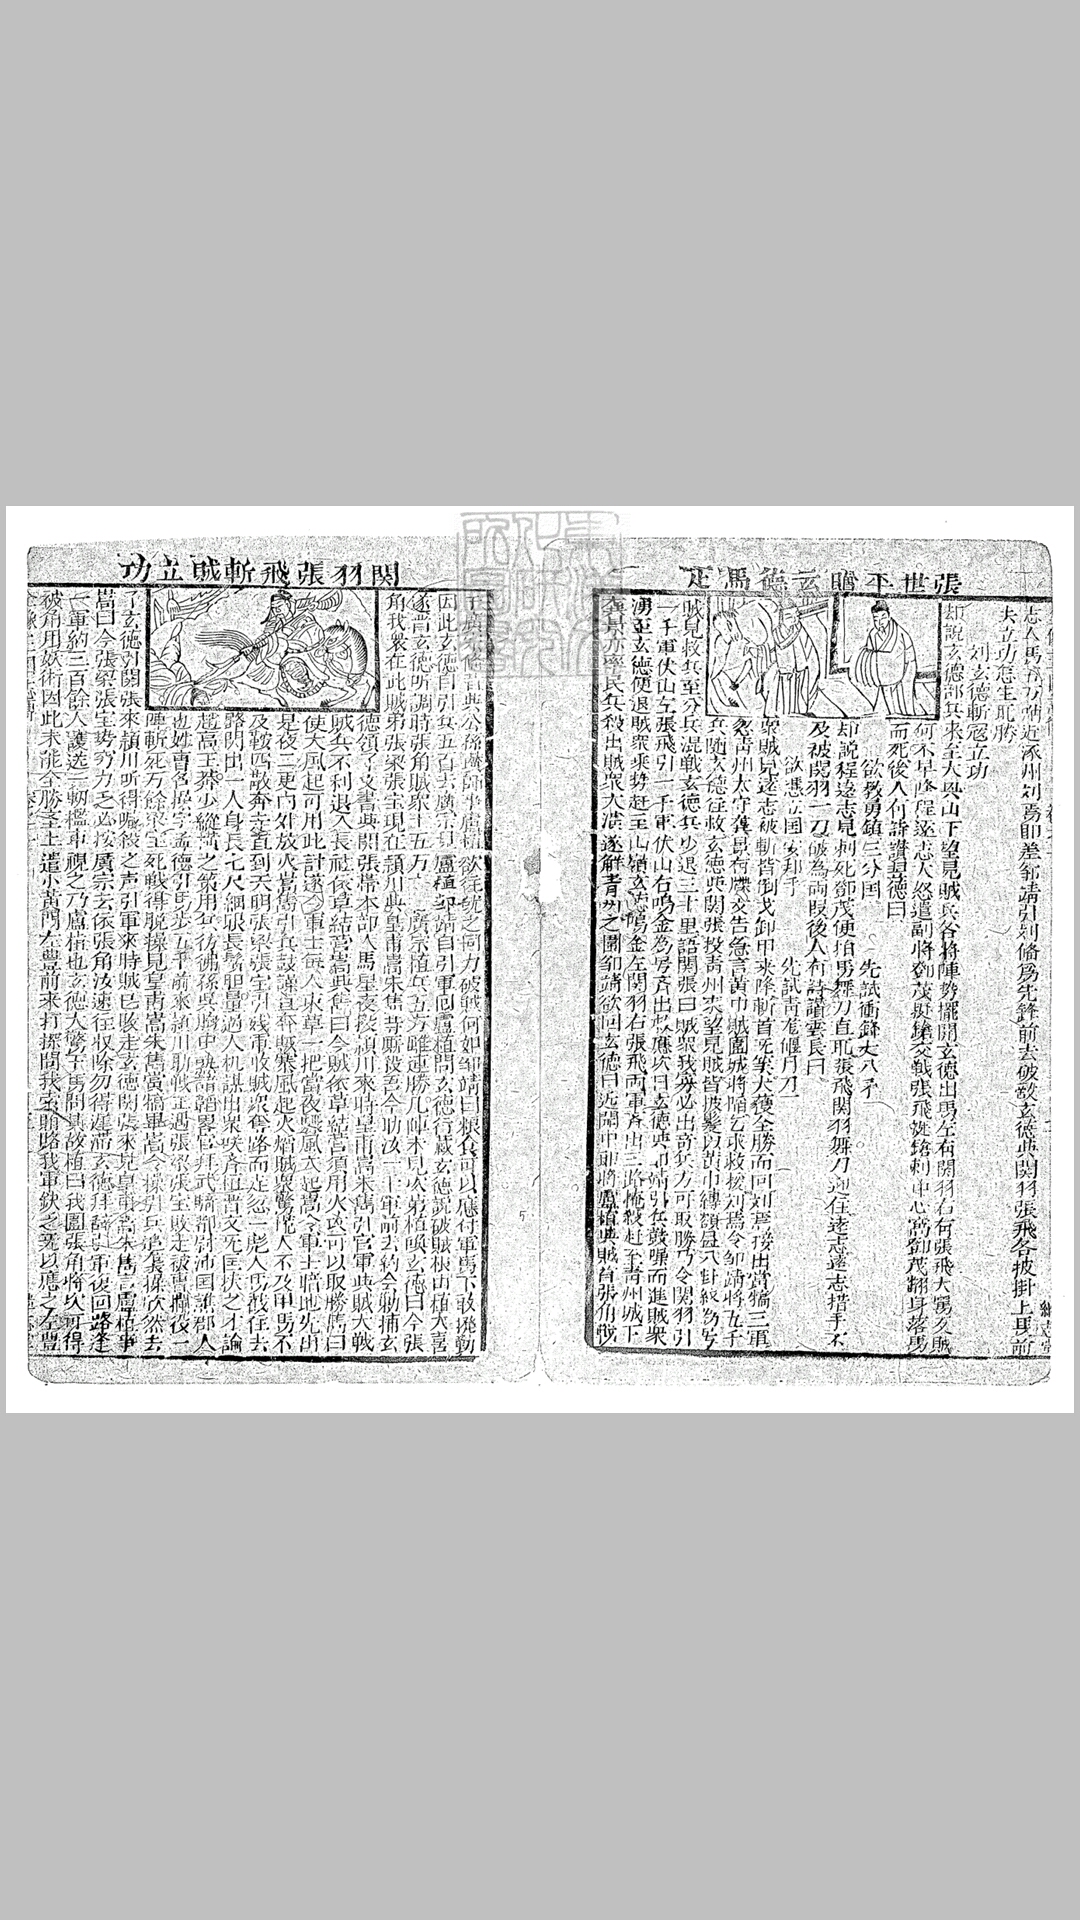 張世平贈玄德馬疋
志人馬五万哨近涿州刘焉即差鄒靖引刘俻為先鋒前去破敵玄德與関羽張飛各披掛上馬前
夫立功怎生取勝
刘玄德斬寇立功
却說玄德部兵來至大興山下望見賊兵各將陣势擺開玄德出馬左有関羽右有張飛大罵久賊
何不早降程遠志大怒遣副將鄧茂與飛交戰張飛挺鎗刺中心窩鄧茂翻身落馬
而死後人有詩讃翼德曰
欲教勇鎮三分囯 先試衝鋒丈八矛
却說程遠志見刺死鄧茂便拍馬舞刀直取張飛関羽舞刀迎住遠志遠志措手不
及被関羽一刀破為両段後人有詩讃雲長曰
欲憑立囯安邦手 先試青龙偃月刀
衆賊見遠志被斬皆倒戈卸甲來降斬首无筭大獲全勝而回刘焉接出賞犒三軍
忽青州太守龔景有牒文告急言黃巾賊圍城將陷乞求救援刘焉令鄒靖將五千
兵随玄德往救玄德與関張投青州來望見賊皆披髮以黃巾縛額畫八卦紋為号
賊見救兵至分兵混戰玄德兵少退三十里語関張曰賊衆我寡必出奇兵方可取勝乃令関羽引
一千軍伏山左張飛引一千軍伏山右鳴金為号齐出救應次日玄德與鄒靖引兵鼓噪而進賊衆
湧至玄德便退賊衆乘势赶至山嶺玄德鳴金左関羽右張飛両軍齐出三路掩殺赶至青州城下
龔景亦率民兵殺出賊衆大潰遂觧青州之圍鄒靖欲回玄德曰近聞中郎將盧植與賊首張角戰
関羽張飛斬賊立功
于廣宗俻昔與公孫瓚師事盧植欲往就之同力破賊何如鄒靖曰粮食可以應付軍馬不敢擅動
因此玄德自引兵五百去廣宗見盧植鄒靖自引軍回盧植問玄德行藏玄德說破賊根由植大喜
遂畱玄德听調時張角賊衆十五万 廣宗植兵五万雖連勝几陣未見次弟植喚玄德曰今張
角我圍在此賊弟張梁張宝現在頴川與皇甫嵩朱雋廝殺吾今助汝一千軍前去約會勦捕玄
德領了文書與関張帶本部人馬星夜投頴川來時皇甫嵩朱雋引官軍與賊大戰
賊兵不利退入長社依草結營嵩與雋曰今賊依草結營須用火攻可以取勝雋曰
使大風起可用此計遂令軍士每人束草一把當夜驟風大起嵩令軍士暗地先出
是夜二更内外放火嵩雋引兵鼓譟直奔賊寨風起火熖賊衆驚慌人不及甲馬不
及鞍四散奔走直到天明張梁張宝引殘軍收賊衆奪路而走忽一彪人馬截住去
路閃出一人身長七尺細眼長髯胆量過人机謀出衆咲齐恒晋文无匡扶之才論
趙高王莽少縱橫之策用兵彷彿孫吳胸中熟諳韜畧官拜武騎都尉沛囯譙郡人
也姓曹名操字孟德引馬步五千前來頴川助戰正遇張梁張宝敗走被曹攔後一
陣斬死万餘梁宝死戰得脫操見皇甫嵩朱雋賞犒畢嵩令操引兵追襲操欣然去
了玄德对関張來頴川听得喊殺之声引軍來時賊已敗走玄德関張來見皇甫嵩朱雋言盧植事
嵩曰今張梁張宝势穷力乏必投廣宗去依張角汝速往収除勿得遲滯玄德拜辞引軍復回路逢
一軍約三百餘人護送一輛檻車視之乃盧植也玄德大驚下馬問其故植曰我圍張角將次可得
被角用妖術因此未能全勝圣上遣小黃門左豊前來打探問我索賄賂我軍欽乏无以應之左豊